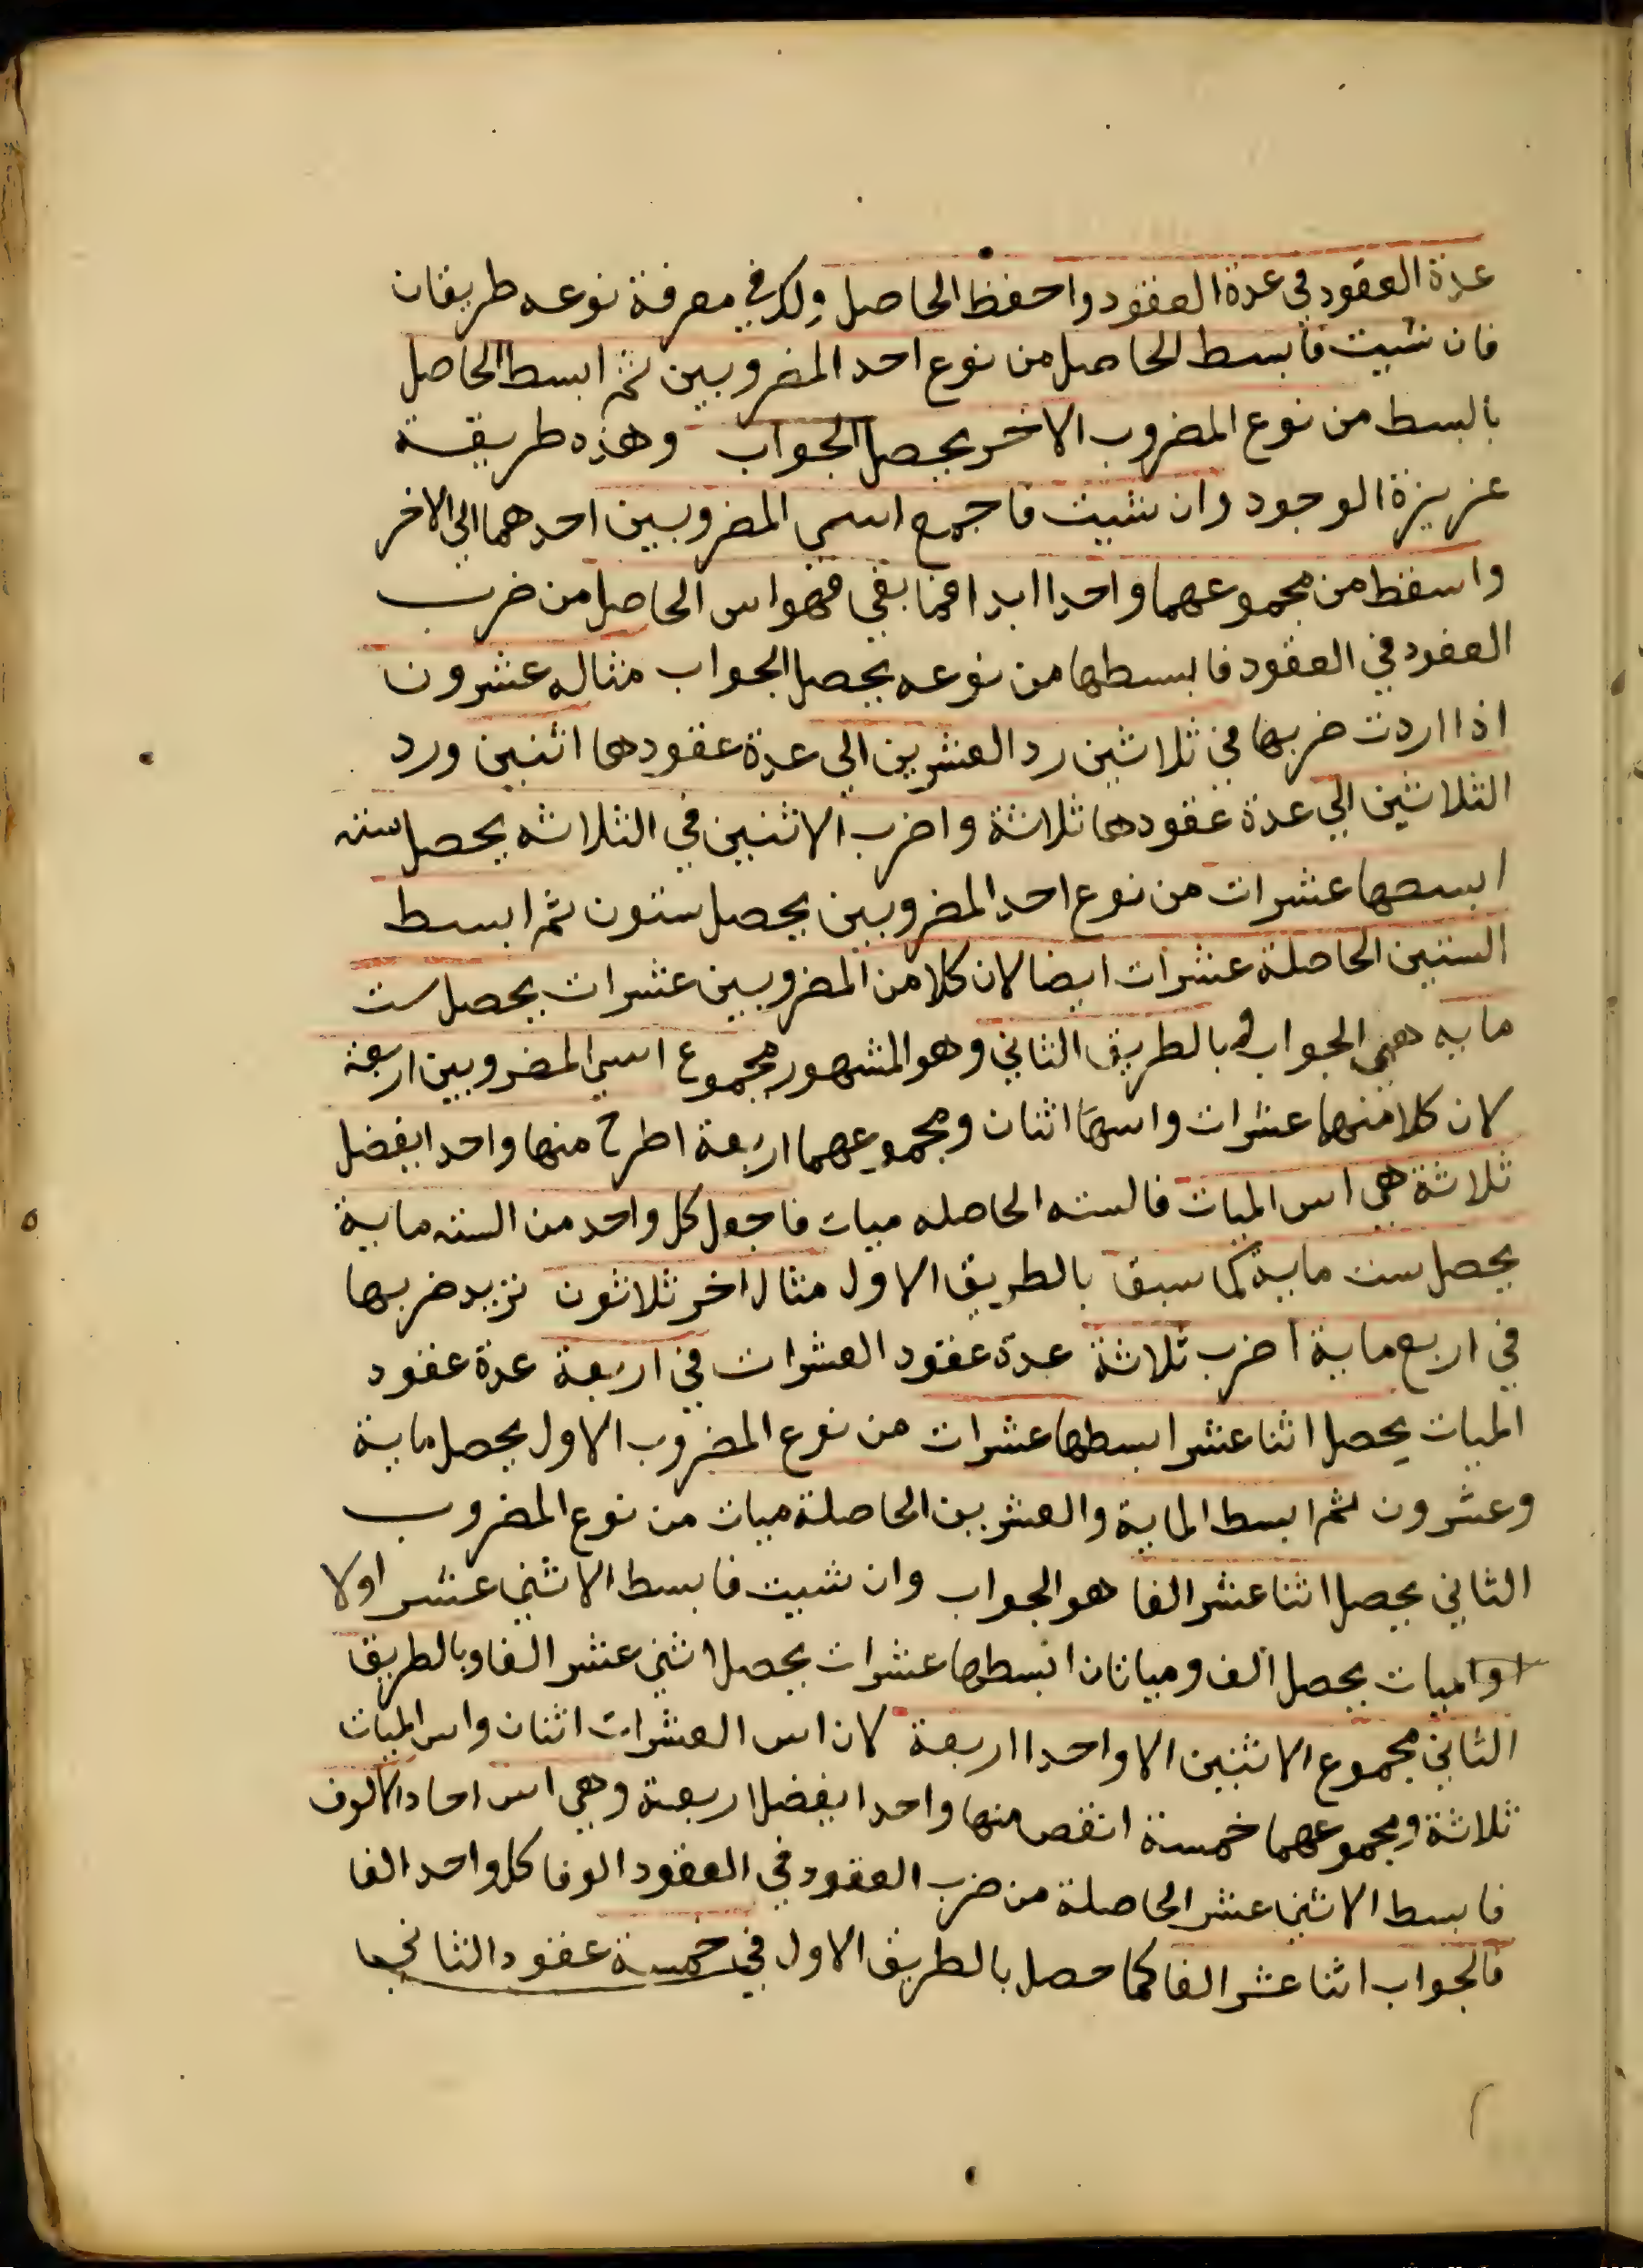 عدة العقود في عدة العقود واحفظ الحاصل ولك في معرفة نوعه طريقان
فان شيت فابسط الحاصل من نوع احد المضروبين ثم ابسط الحاصل
بالبسط من نوع المضروب الاخر يحصل الجواب وهذه طريقة
عزيزة الوجود وان شيت فاجمع اسي المضروبين احدهما الي الاخر
واسقط من مجموعهما واحدا ابدا فما بقي فهو اس الحاصل من ضرب
العقود في العقود فابسطها من نوعه يحصل الجواب مثاله عشرون
اذا اردت ضربها في ثلاثين رد العشرين الي عدة عقودها اثنين ورد
الثلاثين الي عدة عقودها ثلاثة واضرب الاثنين في الثلاثه يحصل سته
ابسطها عشرات من نوع احد المضروبين يحصل ستون ثم ابسط
الستين الحاصلة عشرات ايضا لان كلا من المضروبين عشرات يحصل ست
مايه هي الجواب وبالطريق الثاني وهو المشهور مجموع اسي المضروبين اربعة
لان كلا منهما عشرات واسها اثنان ومجموعهما اربعة اطرح منها واحدا يفضل
ثلاثة هي اس الميات فالسته الحاصله ميات فاجعل كل واحد من السته ماية
يحصل ست ماية كما سبق بالطريق الاول مثال اخر ثلاثون نزيد ضربها
في اربع ماية اضرب ثلاثة عدة عقود العشرات في اربعة عدة عقود
الميات يحصل اثنا عشر ابسطها عشرات من نوع المضروب الاول يحصل ماية
وعشرون ثم ابسط الماية والعشرين الحاصلة ميات من نوع المضروب
الثاني يحصل اثنا عشر الفا هو الجواب وان شيت فابسط الاثني عشر اولا
اوالميات يحصل الف وميتان ابسطها عشرات يحصل اثني عشر الفا وبالطريق
الثاني مجموع الاثنين الا واحدا اربعة لان اس العشرات اثنان واس الميات
ثلاثة ومجموعهما خمسة انقص منها واحدا يفضل اربعة وهي اس احاد الالوف
فابسط الاثني عشر الحاصلة من ضرب العقود في العقود الوفا كل واحد الفا
فالجواب اثنا عشر الفا كما حصل بالطريق الاول في خمسة عقود الثاني